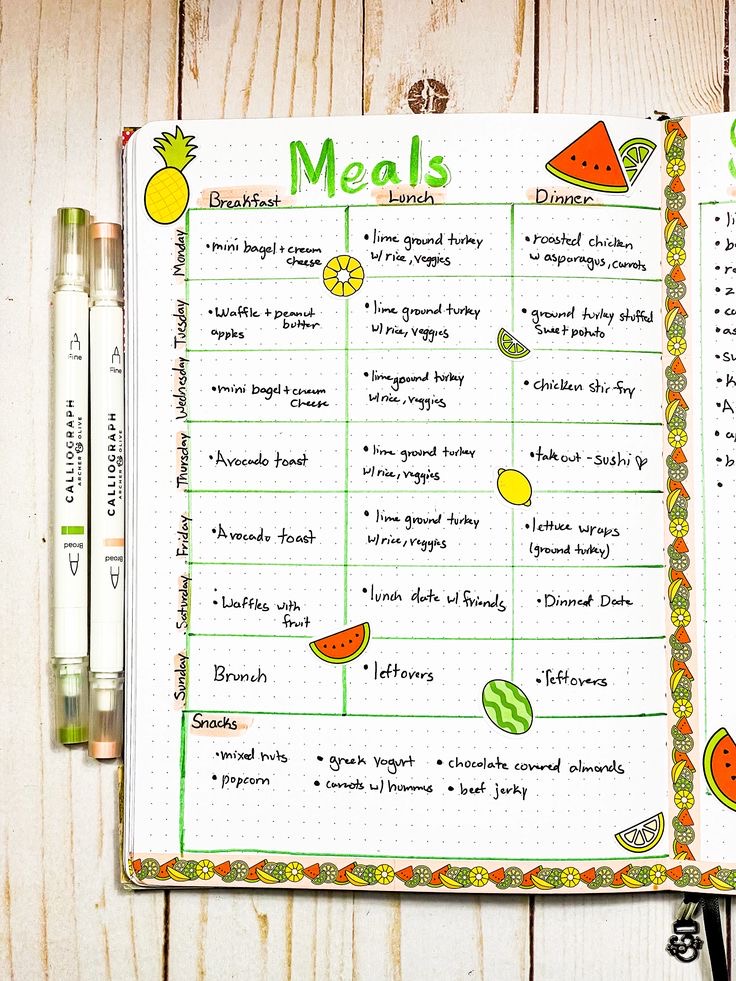 Meals
Breakfast
Lunch
Dinner
Monday
•mini bagel + cream
cheese
•lime ground turkey
w/ rice, veggies
•roasted chicken
w asparagus, carrots
Tuesday
•Waffle + peanut
butter
apples
•lime ground turkey
w/ rice, veggies
•ground turkey stuffed
sweet potato
Wednesday
•mini bagel + cream
cheese
•lime ground turkey
w/ rice, veggies
•chicken stir-fry
Thursday
•Avocado toast
•lime ground turkey
w/ rice, veggies
•takeout - sushi ♡
Friday
•Avocado toast
•lime ground turkey
w/ rice, veggies
•lettuce wraps
(ground turkey)
Saturday
•Waffles with
fruit
•lunch date w/ friends
•Dinner Date
Sunday
Brunch
•leftovers
•leftovers
Snacks
•mixed nuts
•greek yogurt
•chocolate covered almonds
•popcorn
•carrots w/ hummus
•beef jerky
Fine
CALLIOGRAPH
ARCHER & OLIVE
Broad
Fine
CALLIOGRAPH
ARCHER & OLIVE
Broad